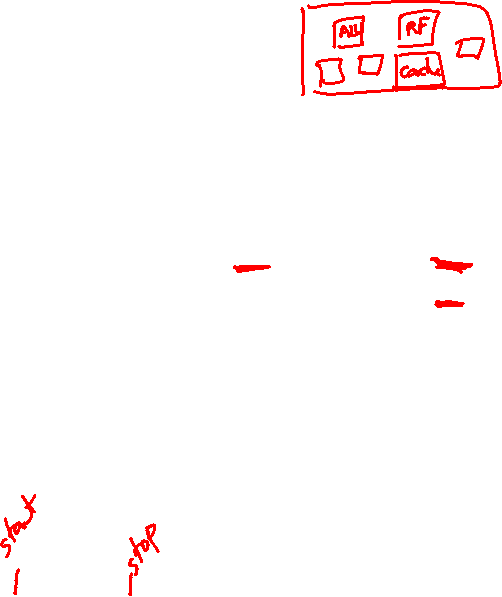 ALU RF
Cache
start
stop